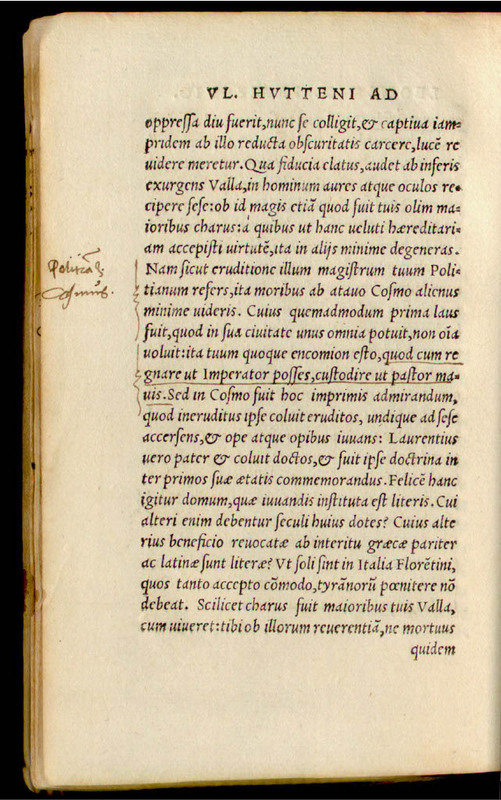 VL. HVTTENI AD
oppressa diu fuerit,nunc se colligit,& captiua iam-
pridem ab illo reducta obscuritatis carcere,lucẽ re
uidere meretur. Qua fiducia elatus,audet ab inferis
exurgens Valla,in hominum aures atque oculos re-
cipere sese:ob id magis etiã quod fuit tuis olim ma-
ioribus charus:a quibus ut hanc ueluti hæreditari-
am accepisti uirtutẽ,ita in alijs minime degeneras.
Nam sicut eruditione illum magistrum tuum Poli-
tianum refers,ita moribus ab atauo Cosmo alienus
minime uideris. Cuius quemadmodum prima laus
fuit,quod in sua ciuitate unus omnia potuit,non oĩa
uoluit:ita tuum quoque encomion esto,quod cum re
gnare ut Imperator posses,custodire ut pastor ma-
uis. Sed in Cosmo fuit hoc imprimis admirandum,
quod ineruditus ipse coluit eruditos, undique ad sese
accersens,& ope atque opibus iuuans: Laurentius
uero pater & coluit doctos,& fuit ipse doctrina in
ter primos suæ ætatis commemorandus. Felicẽ hanc
igitur domum,quæ iuuandis instituta est literis. Cui
alteri enim debentur seculi huius dotes? Cuius alte
rius beneficio reuocatæ ab interitu græcæ pariter
ac latinæ sunt literæ? Vt soli sint in Italia Florẽtini,
quos tanto accepto cõmodo,tyrãnorũ pœnitere nõ
debeat. Scilicet charus fuit maioribus tuis Valla,
cum uiueret:tibi ob illorum reuerentiã,ne mortuus
quidem
Cosmus.